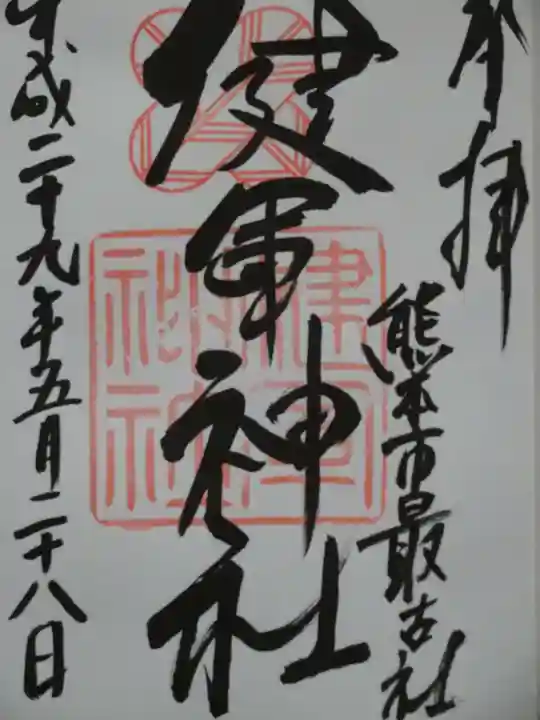 奉拝
熊本市最古社
健軍神社
平成二十九年五月二十八日